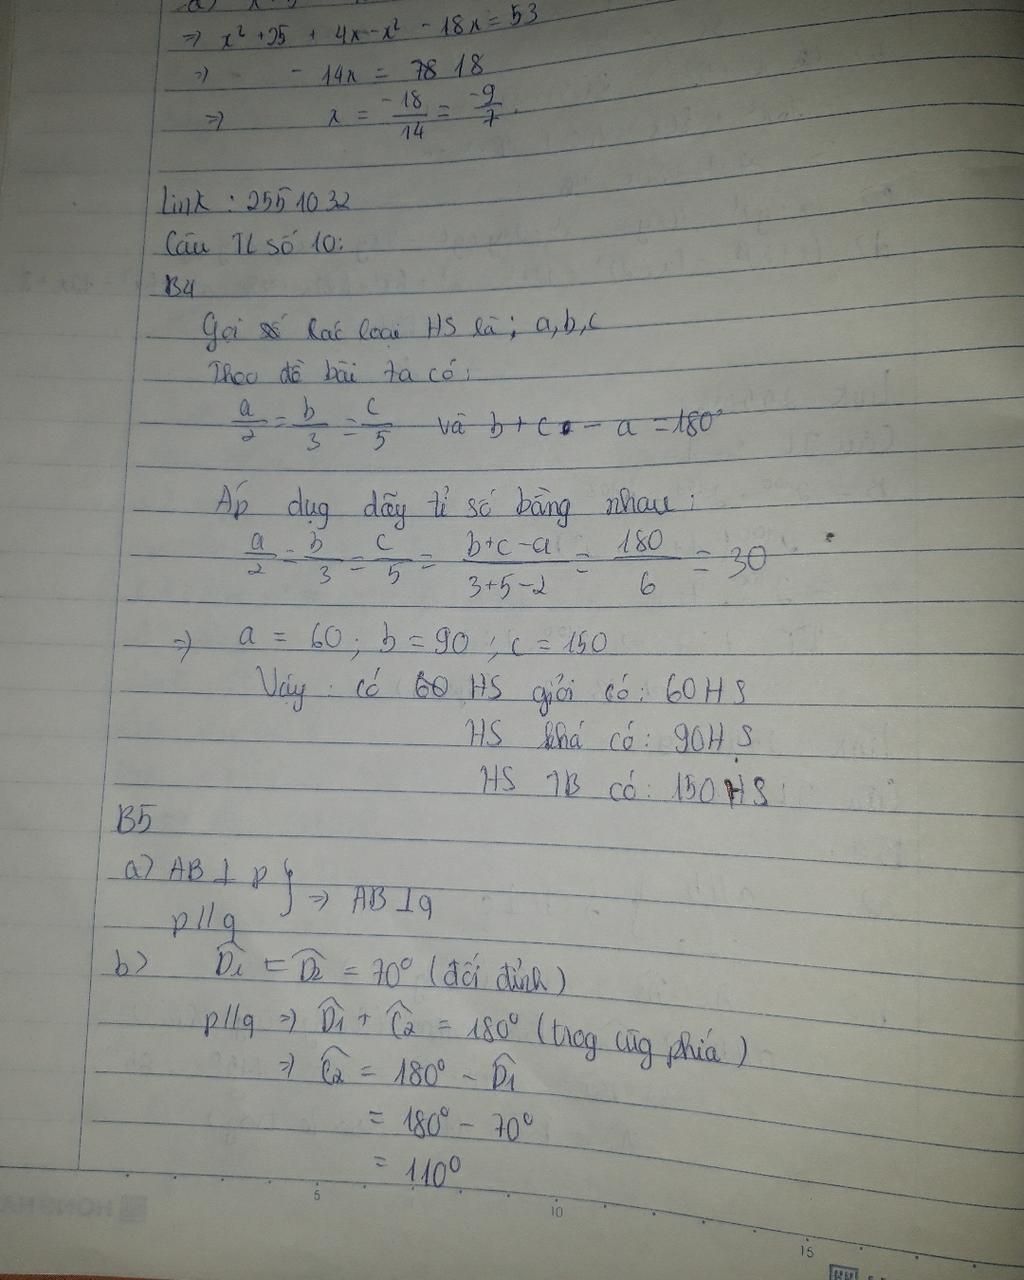 a) x
=> x² + 25 + 4x - x² - 18x = 53
=> - 14x = 78 18
=> x = -18/14 = -9/7.
Link : 2551032
Câu TL số 10:
B4
Gọi số các loại HS là; a,b,c
Theo đề bài ta có;
a/2 = b/3 = c/5 và b + c - a = 180°
Áp dụg dãy tỉ số bằng nhau;
a/2 = b/3 = c/5 = b+c-a/3+5-2 = 180/6 = 30
=> a = 60; b = 90; c = 150
Vậy: có 60 HS giỏi có: 60HS
HS khá có: 90HS
HS TB có: 150HS
B5
a) AB ⊥ p
p//q } => AB ⊥ q
b) D̂1 = D̂2 = 70° (đối đỉnh)
p//q => D̂1 + Ĉ2 = 180° (trog cùg phía)
=> Ĉ2 = 180° - D̂1
= 180° - 70°
= 110°
5
10
15